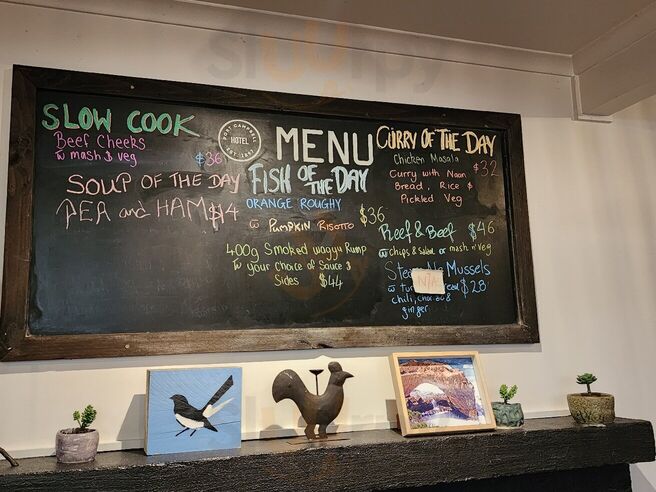 SLOW COOK
Beef Cheeks
w mash & veg $36
SOUP OF THE DAY
PEA and HAM $14
PORT CAMPBELL
HOTEL
MENU
FISH OF THE DAY
ORANGE ROUGHY
w PUMPKIN RISOTTO $36
400g Smoked wagyu Rump
w your Choice of Sauce &
Sides $44
CURRY OF THE DAY
Chicken Masala
Curry with Naan $32
Bread, Rice &
Pickled Veg
Reef & Beef $46
w chips & Salad or mash n veg
Mussels
$28
chili, chorizo &
ginger
sluurpy